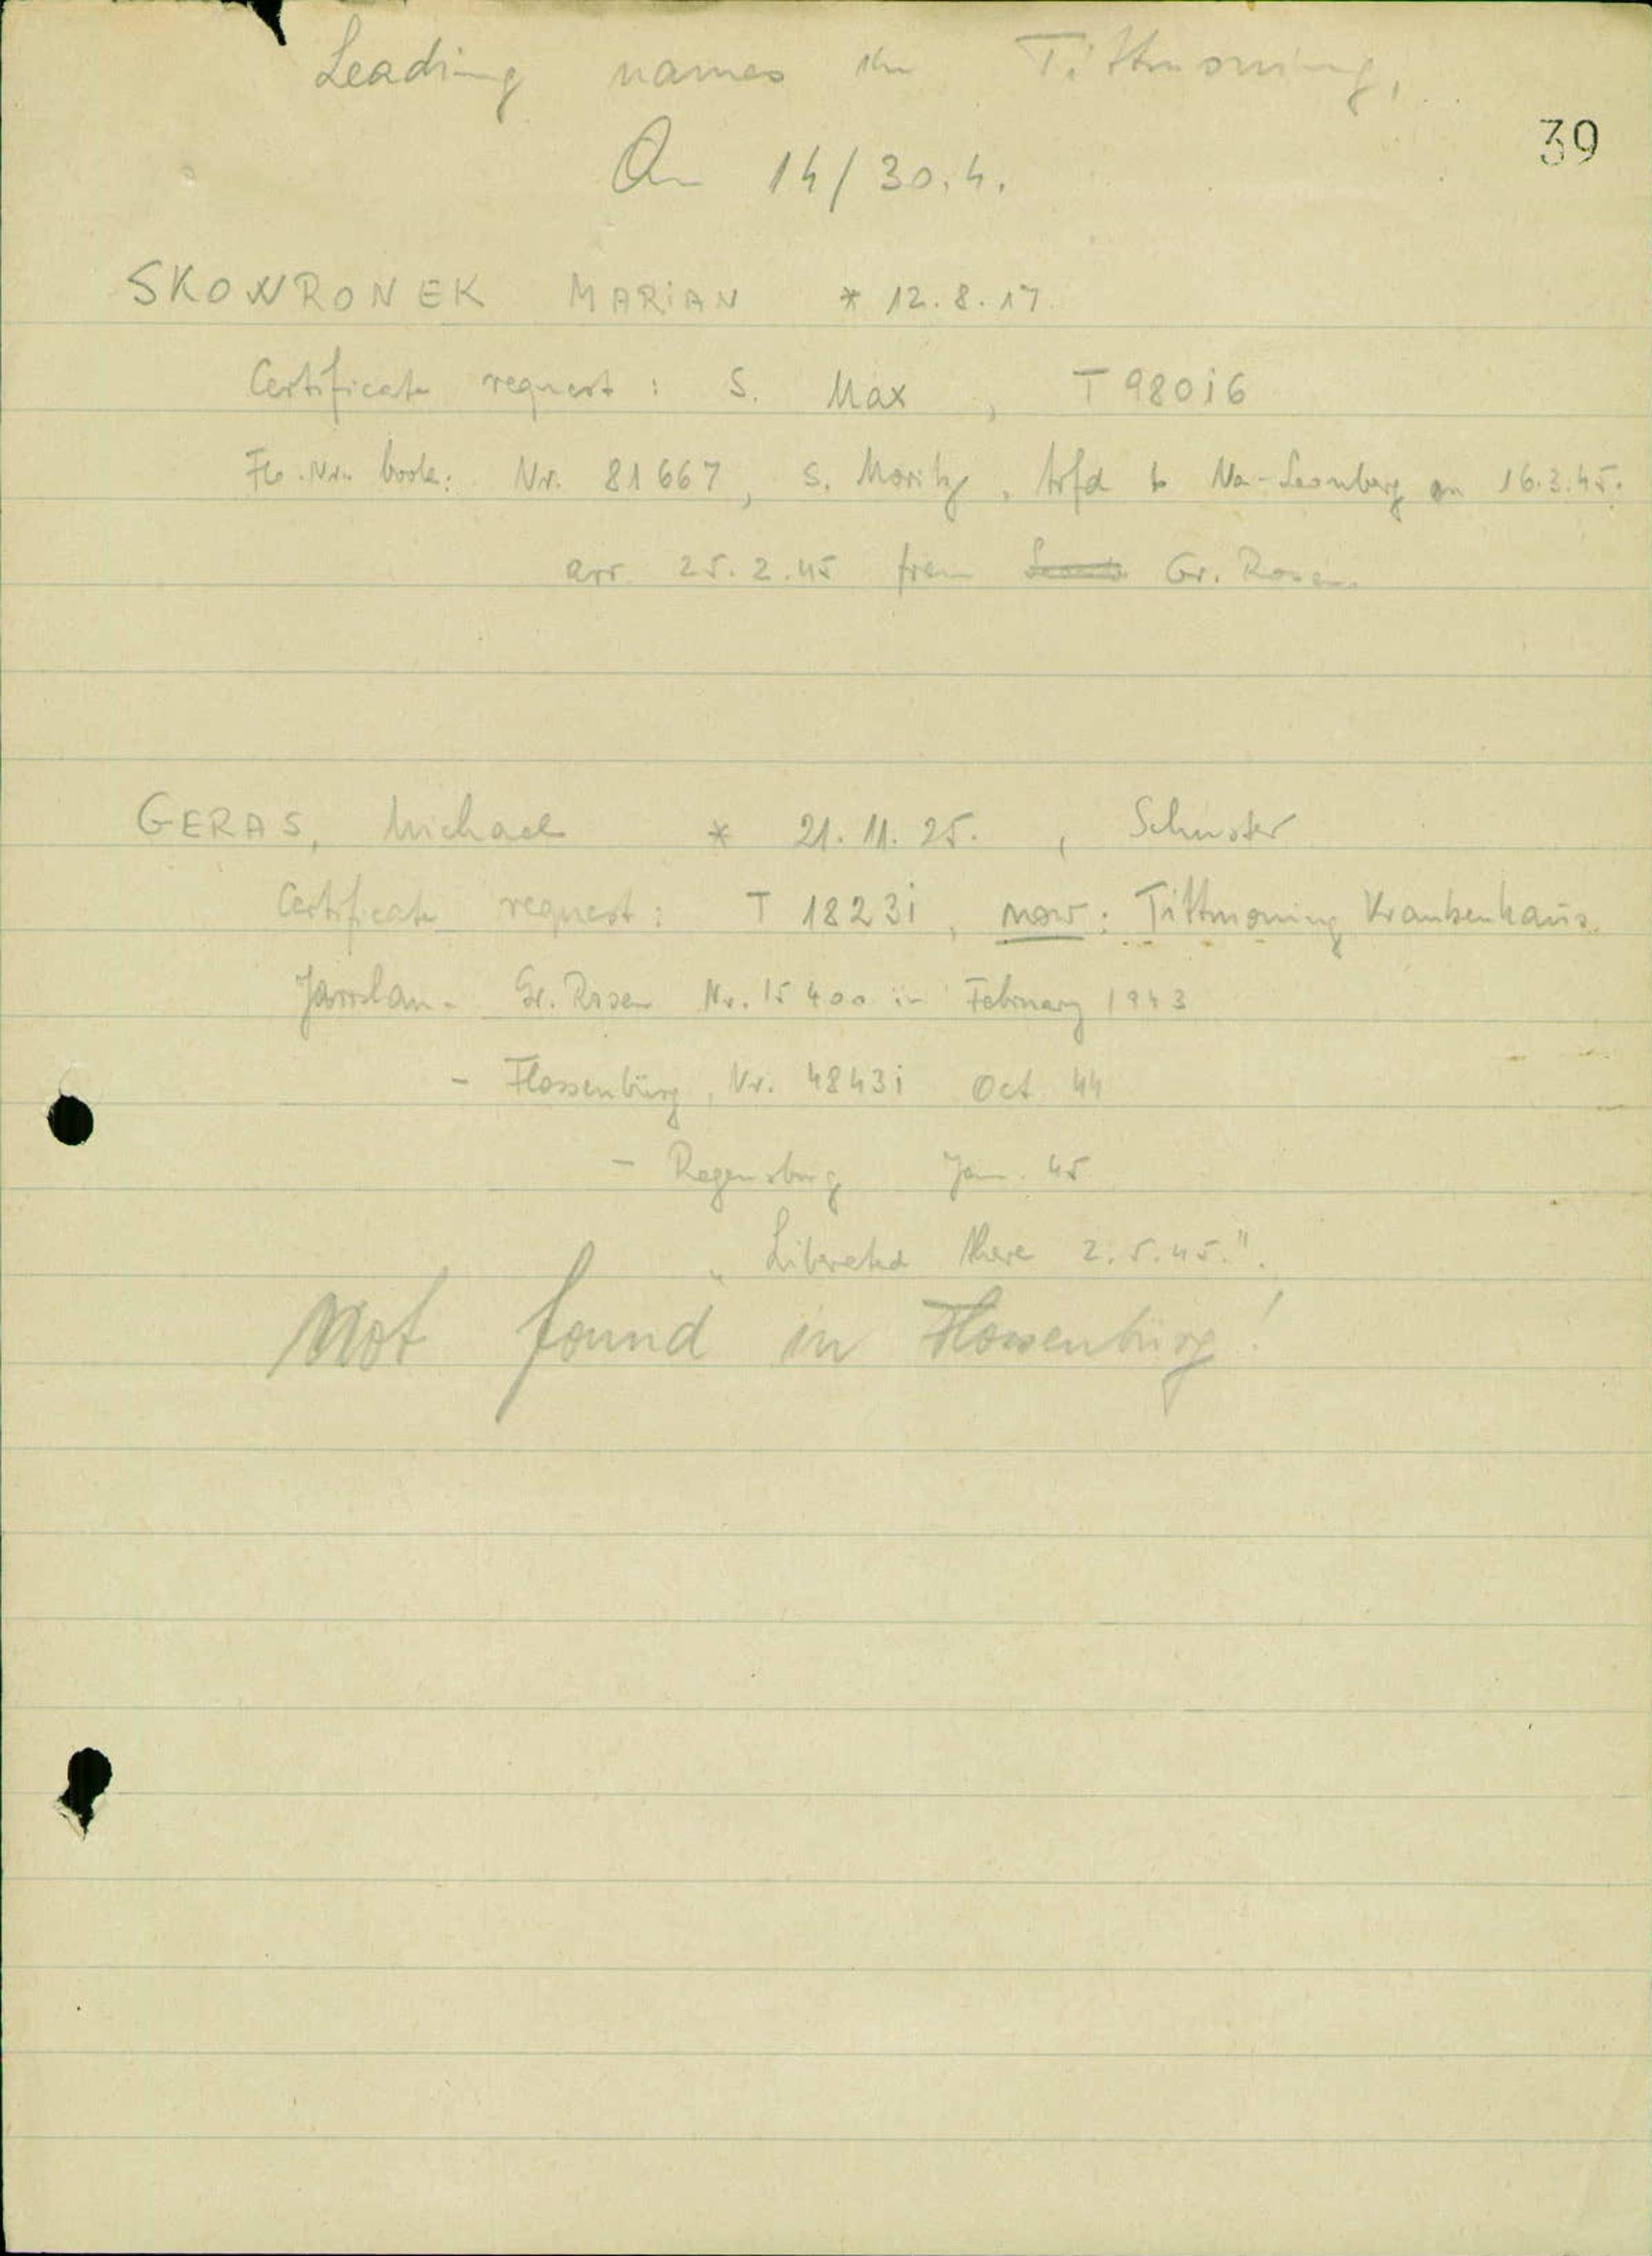 Leading names in Tittmoning,
39
On 14/30.4.
SKOWRONEK MARIAN * 12.8.17
Certificate request: S. Max, T 98016
Flo. Nr. book: Nr. 81667, S. Moritz, trfd to Na-Leonberg on 16.3.45.
arr 25.2.45 from Gr. Rosen.
GERAS, Michael * 21.11.25., Schuster
Certificate request: T 18231, now: Tittmoning Krankenhaus.
Jaroslau - Gr. Rosen Nr. 15400 in February 1943
- Flossenbürg, Nr. 48431 Oct 44
- Regensburg Jan. 45
„Liberated there 2.5.45.".
Not found in Flossenbürg!